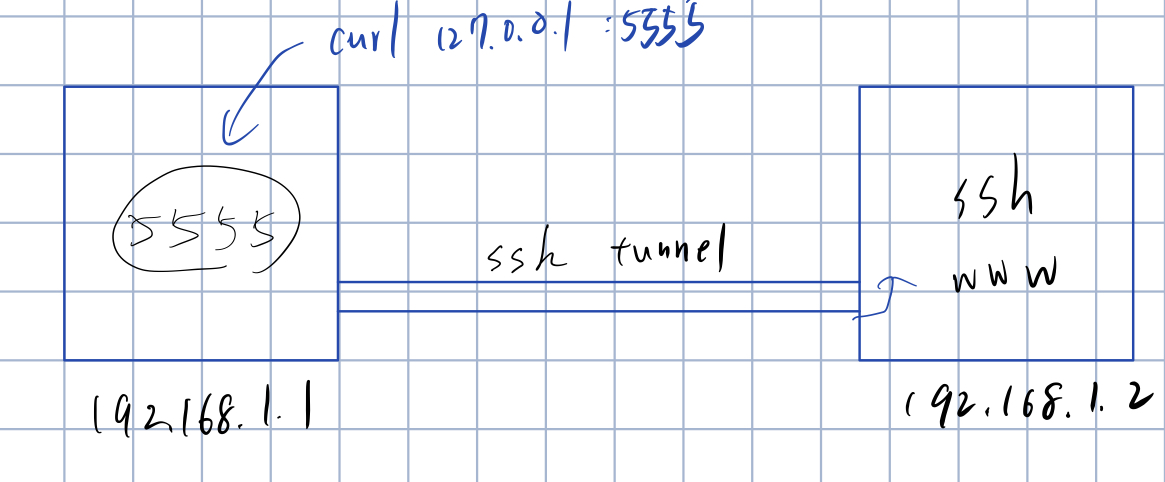 curl 127.0.0.1 :5555
5555
ssh
ssh tunnel
www
192.168.1.1
192.168.1.2